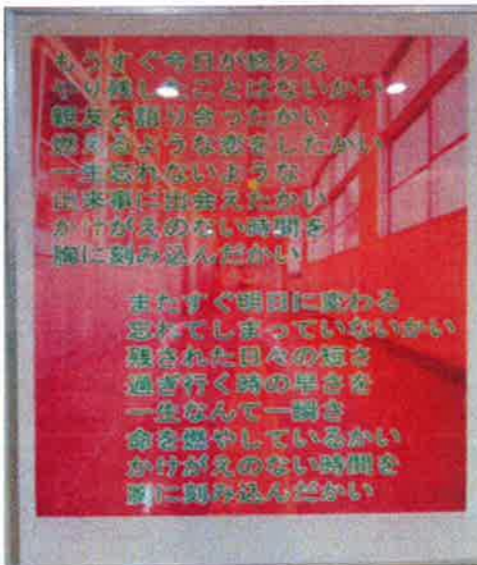 もうすぐ今日が終わる
やり残したことはないかい
親友と語り合ったかい
燃えるような恋をしたかい
一生忘れないような
出来事に出会えたかい
かけがえのない時間を
胸に刻み込んだかい
またすぐ明日に変わる
忘れてしまっていないかい
残された日々の短さ
過ぎ行く時の早さを
一生なんて一瞬さ
命を燃やしているかい
かけがえのない時間を
胸に刻み込んだかい